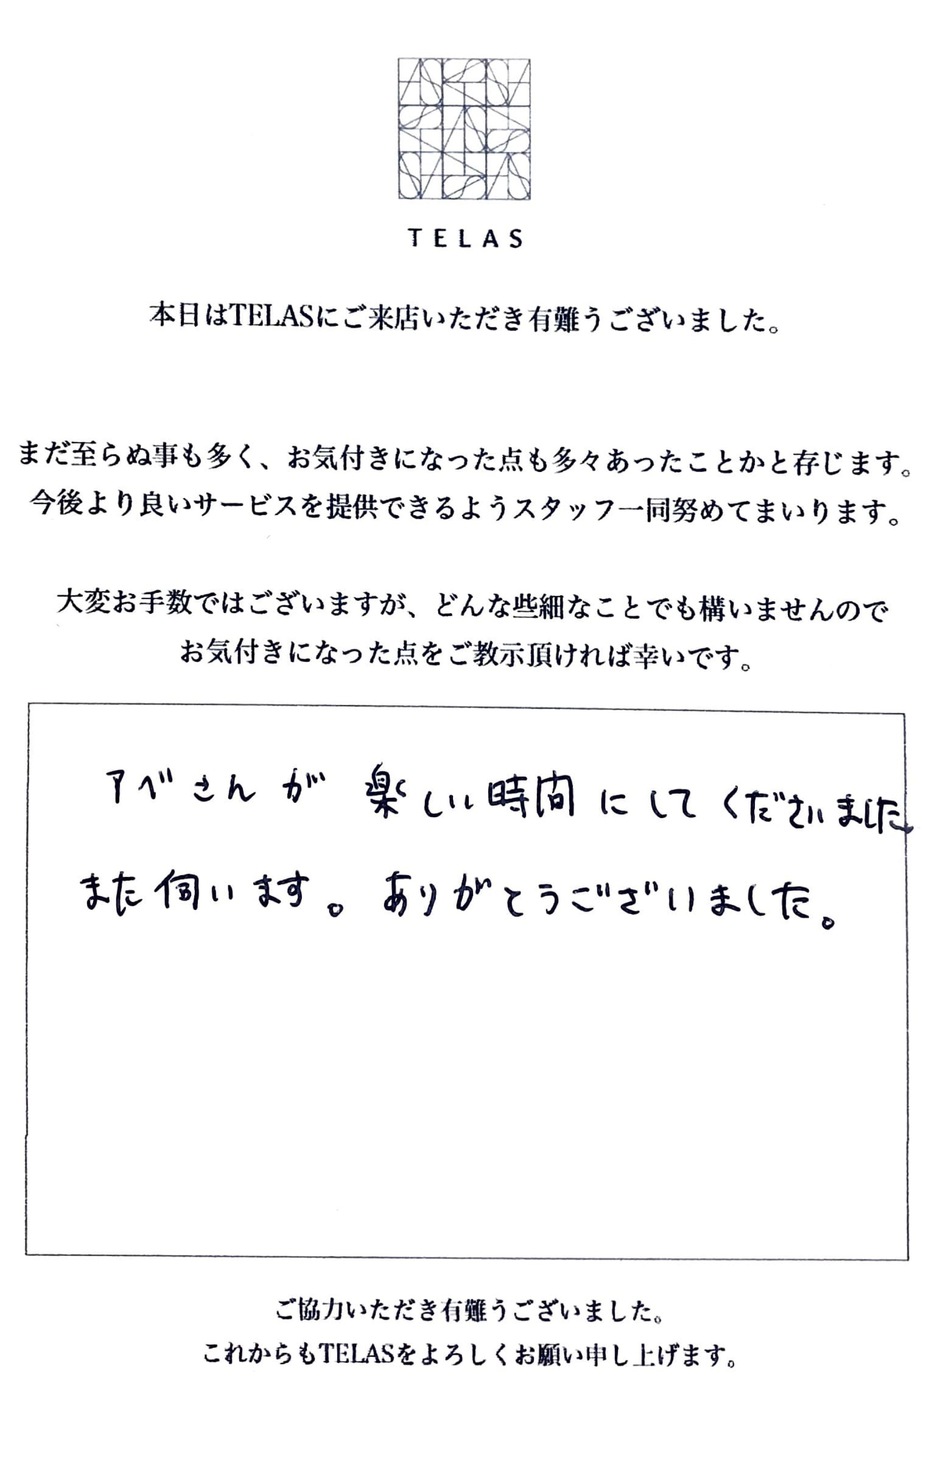 TELAS
本日はTELASにご来店いただき有難うございました。
まだ至らぬ事も多く、お気付きになった点も多々あったことかと存じます。
今後より良いサービスを提供できるようスタッフ一同努めてまいります。
大変お手数ではございますが、どんな些細なことでも構いませんので
お気付きになった点をご教示頂ければ幸いです。
アベさんが 楽しい時間 にして くださいました。
また伺います。ありがとうございました。
ご協力いただき有難うございました。
これからもTELASをよろしくお願い申し上げます。